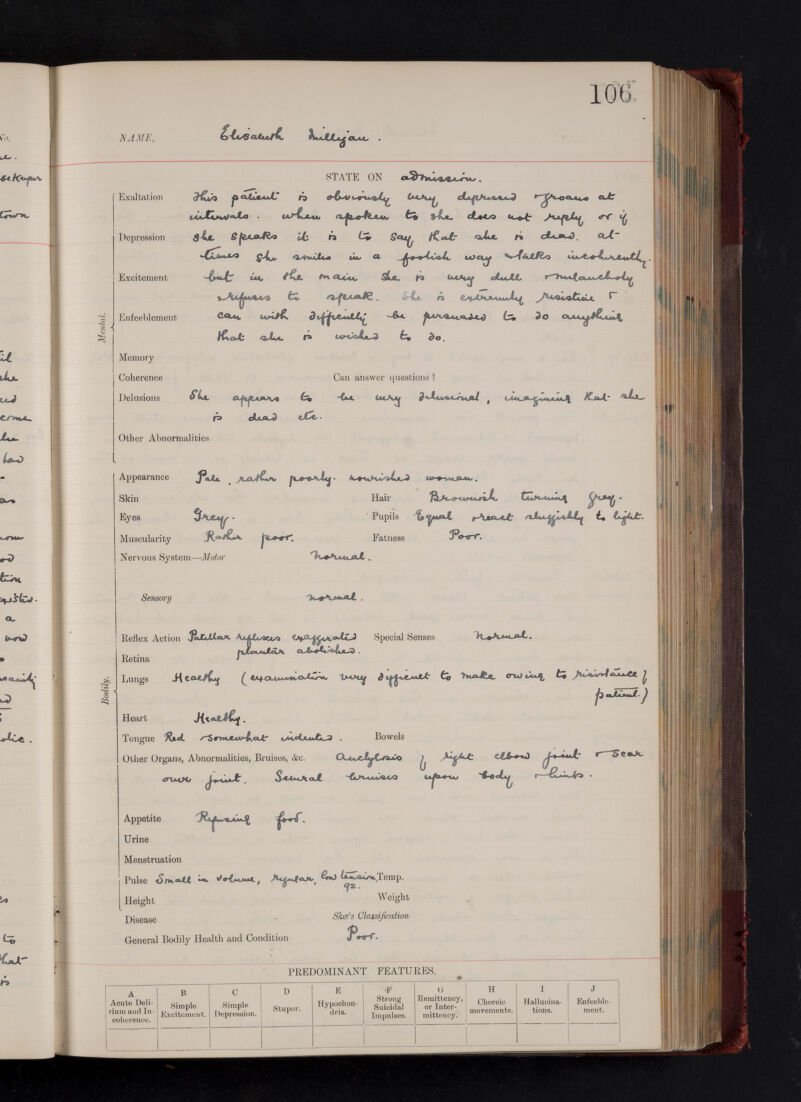 106
NAME. Elisabeth Milligan.
STATE ON admission.
Mental.
Exaltation This patient is obviously very depressed & groans at
intervals. When spoken to she does not reply or if
Depression she speaks it is to say that she is dead. at
times she smiles in a foolish way & talks incoherently.
Excitement but in the main she is very dull & melancholy
& refuses to speak. She is extremely resistive &
Enfeeblement can with difficulty be persuaded to do anything
that she is wished to do.
Memory
Coherence Can answer questions?
Delusions She appears to be very delusional, imagining that she
is dead etc.
Other Abnormalities
Bodily.
Appearance Pale, rather poorly-nourished woman.
Skin Hair Brownish turning grey.
Eyes Grey. Pupils Equal & react sluggishly to light.
Muscularity Rather poor. Fatness Poor.
Nervous System—Motor Normal.
Sensory Normal.
Reflex Action Patellar reflexes exaggerated Special Senses Normal.
plantar abolished.
Retina
Lungs Healthy (examination very difficult to make owing to resistance of
patient.)
Heart Healthy.
Tongue Red & somewhat indented. Bowels
Other Organs, Abnormalities, Bruises, &c. Anclylosis of right elbow joint & scar
over joint. Several bruises upon body & limbs.
Appetite Refusing food.
Urine
Menstruation
Pulse Small in volume, regular, low tension, Temp.
92.
Height Weight
Disease Skae's Classification
General Bodily Health and Condition Poor.
PREDOMINANT FEATURES.
A B C D E F G H I J
Acute Delirium and Incoherence. Simple Excitement. Simple Depression. Stupor. Hypochondria. Strong Suicidal Impulses. Remittency, or Intermittency. Choreic movements. Hallucinations. Enfeeblement.